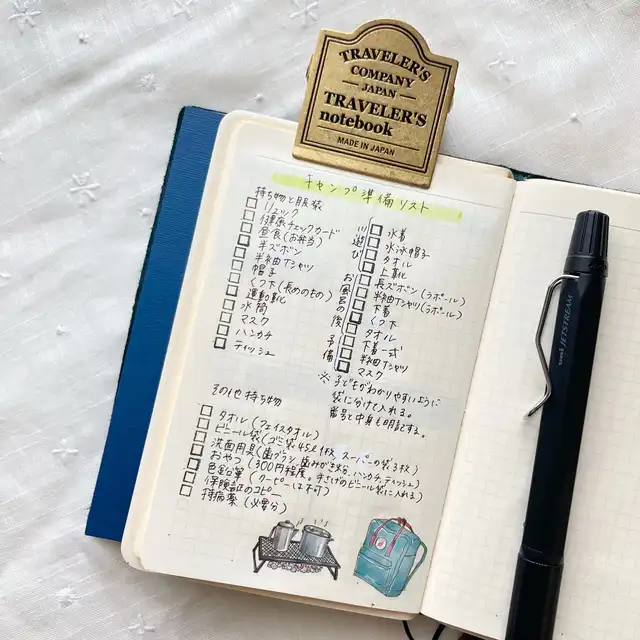 TRAVELER'S
COMPANY
JAPAN
TRAVELER'S
notebook
MADE IN JAPAN
キャンプ準備リスト
持ち物と服装
リュック
健康チェックカード
昼食(お弁当)
半ズボン
半袖Tシャツ
帽子
くつ下(長めのもの)
運動靴
水筒
マスク
ハンカチ
ティッシュ
川遊び
水着
水泳帽子
タオル
上靴
お風呂の後
長ズボン(ラポール)
半袖Tシャツ(ラポール)
下着
くつ下
タオル
予備
下着一式
半袖Tシャツ
マスク
※子どもがわかりやすいように
袋に分けて入れる。
番号と中身も明記する。
その他持ち物
タオル(フェイスタオル)
ビニール袋(ゴミ袋45L1枚、スーパーの袋3枚)
洗面用具(歯ブラシ、歯みがき粉、ハンカチ、ティッシュ)
おやつ(300円程度。手さげのビニール袋に入れる)
色鉛筆(クーピーは不可)
保険証のコピー
持病薬(必要分)
uni JETSTREAM